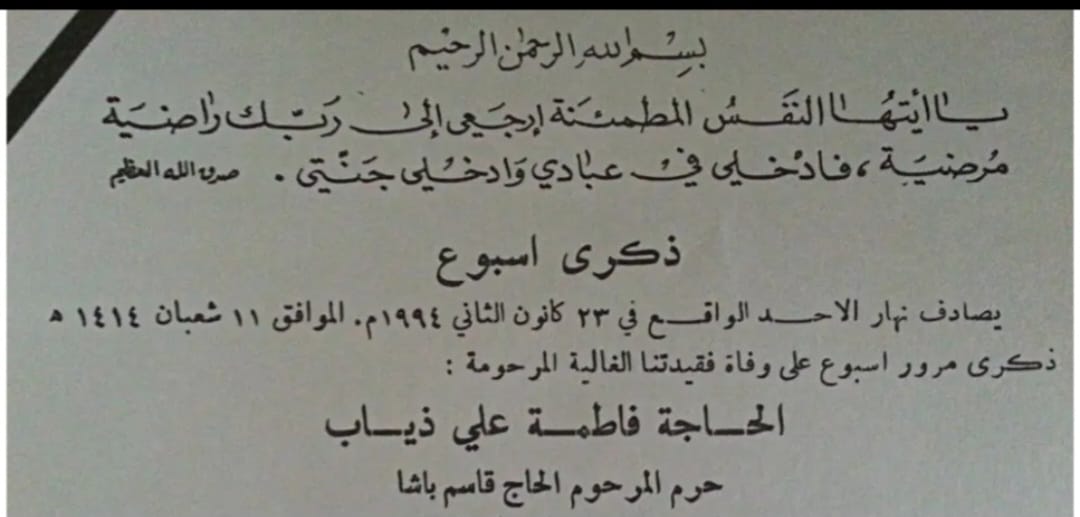 بسم الله الرحمٰن الرحيم
يا أيتها النفس المطمئنة إرجعي إلى ربك راضية
مرضية ، فادخلي في عبادي وادخلي جنتي . صدق الله العظيم
ذكرى اسبوع
يصادف نهار الاحد الواقع في ٢٣ كانون الثاني ١٩٩٤م. الموافق ١١ شعبان ١٤١٤ ه
ذكرى مرور اسبوع على وفاة فقيدتنا الغالية المرحومة :
الحاجة فاطمة علي ذياب
حرم المرحوم الحاج قاسم باشا